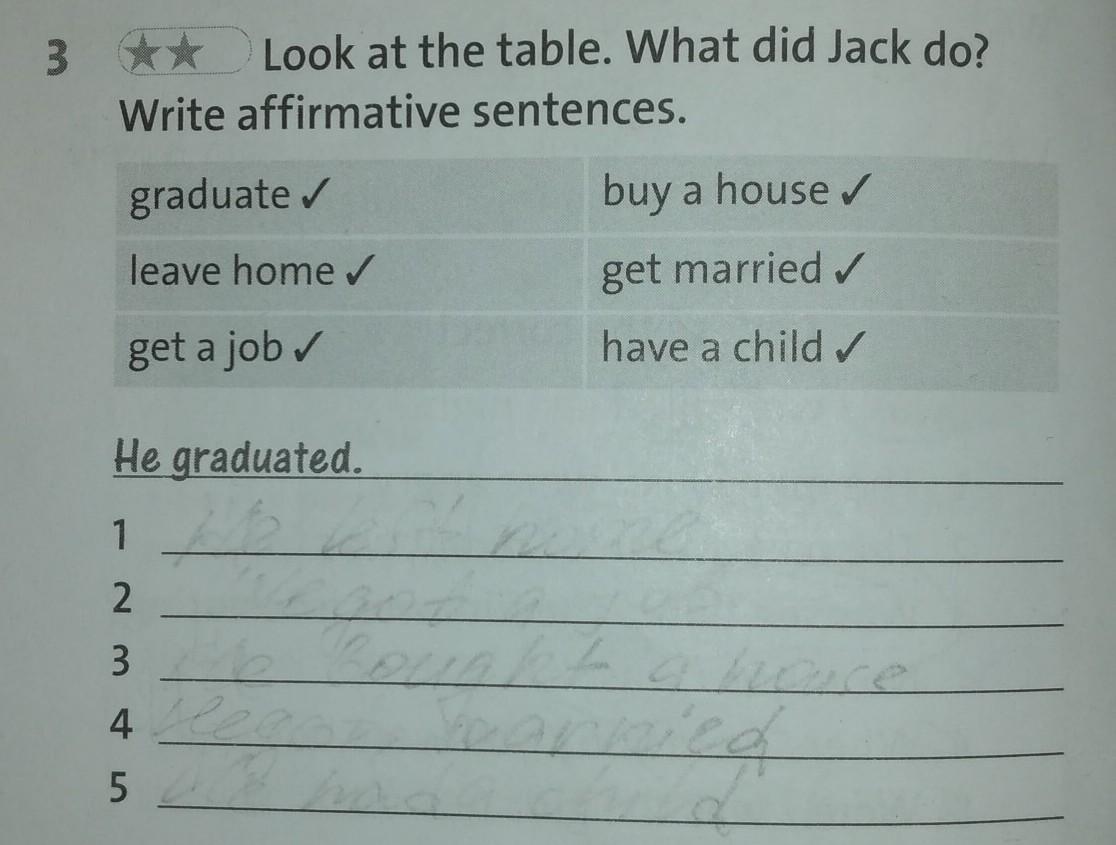 3 ★★ Look at the table. What did Jack do?
Write affirmative sentences.
graduate ✓ buy a house ✓
leave home ✓ get married ✓
get a job ✓ have a child ✓
He graduated.
1 He left home
2 He got a job
3 He bought a house
4 He got married
5 He had a child